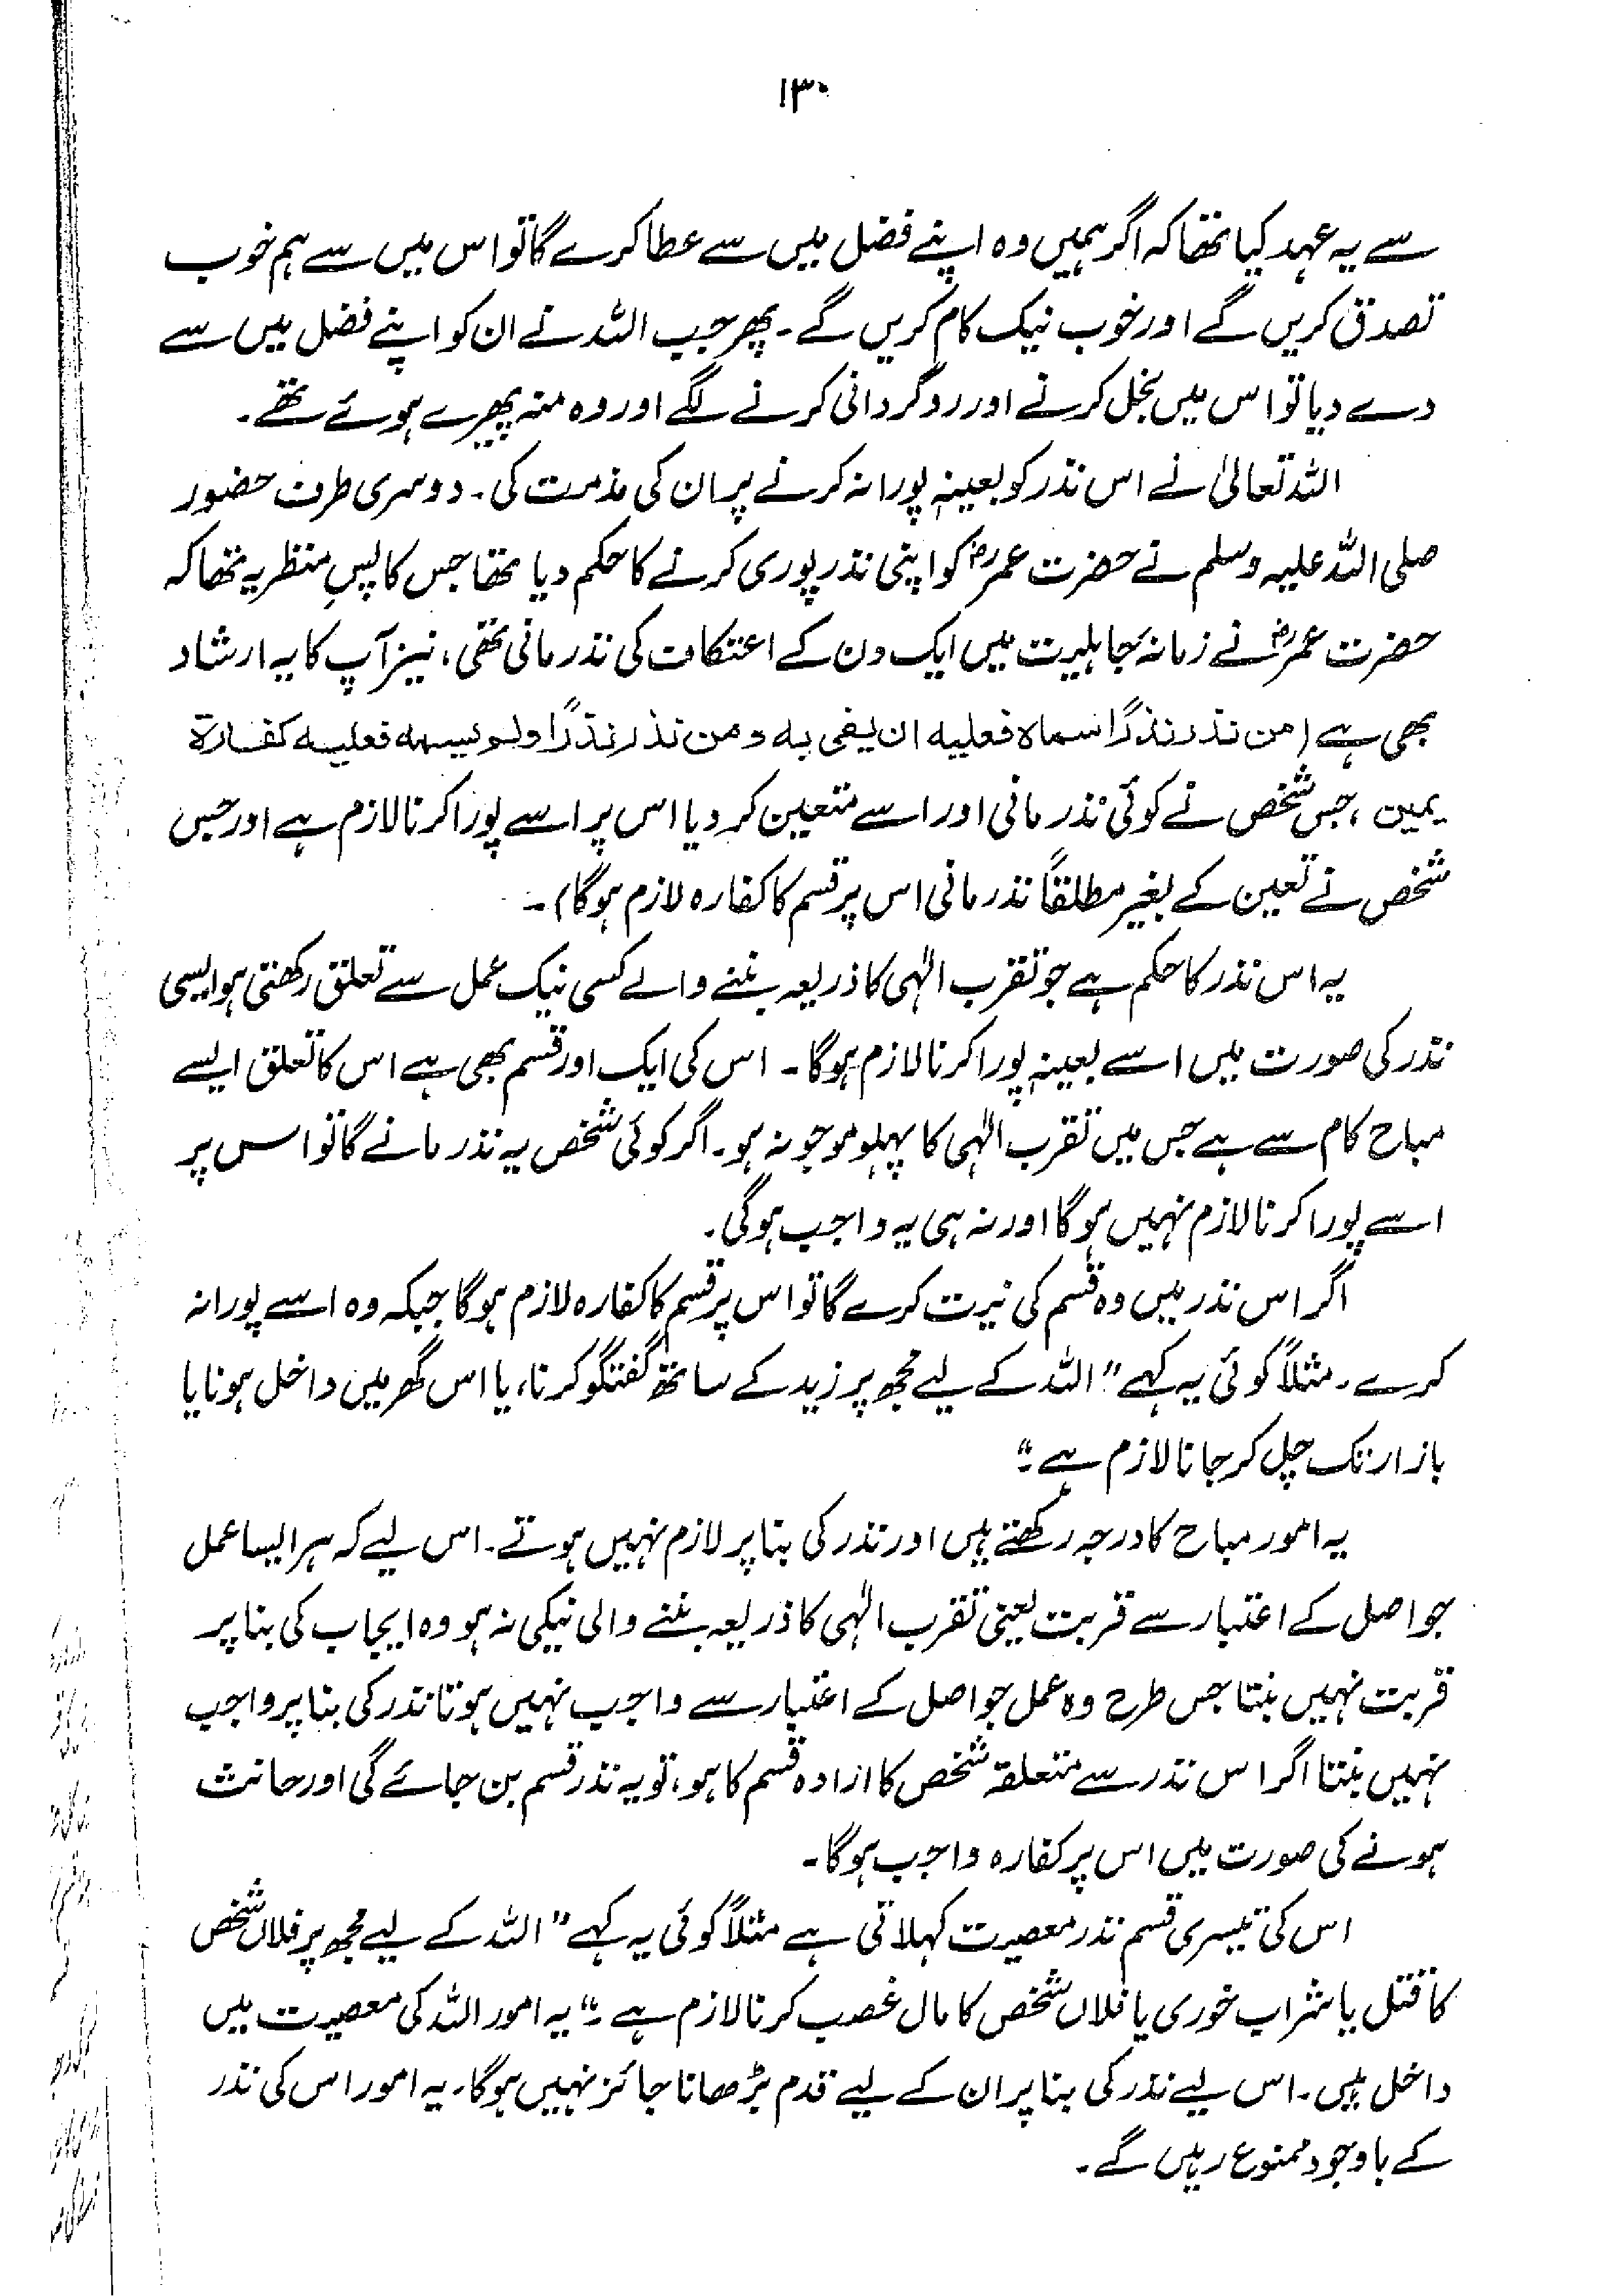 ۱۳۰
سے یہ عہد کیا تھا کہ اگر ہمیں وہ اپنے فضل میں سے عطا کرے گا تو اس میں سے ہم خوب
تصدق کریں گے اور خوب نیک کام کریں گے۔ پھر جب اللہ نے ان کو اپنے فضل میں سے
دے دیا تو اس میں بخل کرنے اور روگردانی کرنے لگے اور وہ منہ پھیرے ہوئے تھے۔
اللہ تعالیٰ نے اس نذر کو بعینہٖ پورا نہ کرنے پر ان کی مذمت کی۔ دوسری طرف حضور
صلی اللہ علیہ وسلم نے حضرت عمرؓ کو اپنی نذر پوری کرنے کا حکم دیا تھا جس کا پسِ منظر یہ تھا کہ
حضرت عمرؓ نے زمانۂ جاہلیت میں ایک دن کے اعتکاف کی نذر مانی تھی، نیز آپ کا یہ ارشاد
بھی ہے (من نذر نذرًا سماہ فعلیہ ان یفی بہ و من نذر نذرًا ولم یسمہ فعلیہ کفارۃ
یمین، جس شخص نے کوئی نذر مانی اور اسے متعین کر دیا اس پر اسے پورا کرنا لازم ہے اور جس
شخص نے تعین کے بغیر مطلقاً نذر مانی اس پر قسم کا کفارہ لازم ہوگا)۔
یہ اس نذر کا حکم ہے جو تقرب الٰہی کا ذریعہ بننے والے کسی نیک عمل سے تعلق رکھتی ہو ایسی
نذر کی صورت میں اسے بعینہٖ پورا کرنا لازم ہوگا۔ اس کی ایک اور قسم بھی ہے اس کا تعلق ایسے
مباح کام سے ہے جس میں تقرب الٰہی کا پہلو موجو نہ ہو۔ اگر کوئی شخص یہ نذر مانے گا تو اس پر
اسے پورا کرنا لازم نہیں ہوگا اور نہ ہی یہ واجب ہوگی۔
اگر اس نذر میں وہ قسم کی نیت کرے گا تو اس پر قسم کا کفارہ لازم ہوگا جبکہ وہ اسے پورا نہ
کرے۔ مثلاً کوئی یہ کہے ”اللہ کے لیے مجھ پر زید کے ساتھ گفتگو کرنا، یا اس گھر میں داخل ہونا یا
بازار تک چل کر جانا لازم ہے۔“
یہ امور مباح کا درجہ رکھتے ہیں اور نذر کی بنا پر لازم نہیں ہوتے۔ اس لیے کہ ہر ایسا عمل
جو اصل کے اعتبار سے قربت یعنی تقرب الٰہی کا ذریعہ بننے والی نیکی نہ ہو وہ ایجاب کی بنا پر
قربت نہیں بنتا جس طرح وہ عمل جو اصل کے اعتبار سے واجب نہیں ہوتا نذر کی بنا پر واجب
نہیں بنتا اگر اس نذر سے متعلقہ شخص کا ارادہ قسم کا ہو، تو یہ نذر قسم بن جائے گی اور حانث
ہونے کی صورت میں اس پر کفارہ واجب ہوگا۔
اس کی تیسری قسم نذر معصیت کہلاتی ہے مثلاً کوئی یہ کہے ”اللہ کے لیے مجھ پر فلاں شخص
کا قتل یا شراب خوری یا فلاں شخص کا مال غصب کرنا لازم ہے۔“ یہ امور اللہ کی معصیت میں
داخل ہیں۔ اس لیے نذر کی بنا پر ان کے لیے قدم بڑھانا جائز نہیں ہوگا۔ یہ امور اس کی نذر
کے باوجود ممنوع رہیں گے۔